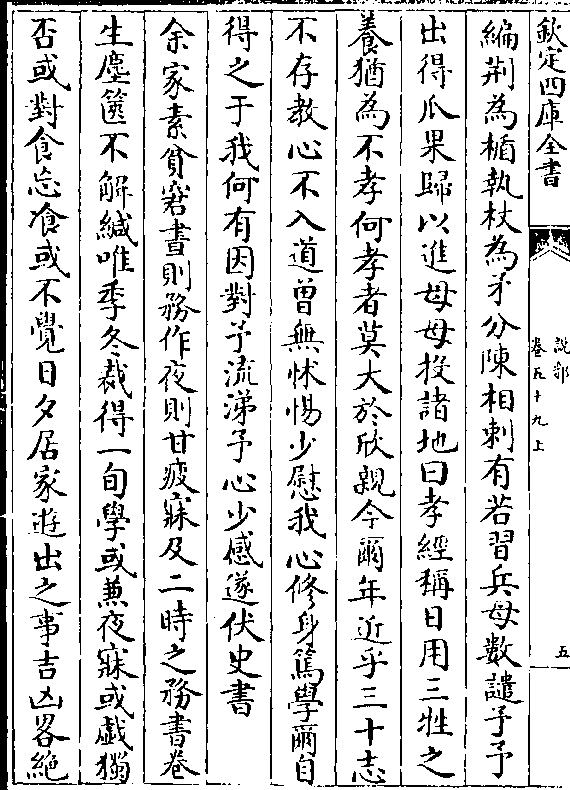 欽定四庫全書
說郛
卷五十九上
五
編荆為楯執杖為矛分陳相刺有若習兵母數譴予予
出得瓜果歸以進母母投諸地曰孝經稱日用三牲之
養猶為不孝何孝者莫大於欣親今爾年近乎三十志
不存教心不入道曽無怵惕少慰我心修身篤學爾自
得之于我何有因對予流涕予心少感遂伏史書
余家素貧窘晝則務作夜則甘疲寐及二時之務書卷
生塵篋不解緘唯季冬裁得一旬學或兼夜寐或戲獨
否或對食忘飡或不覺日夕居家遊出之事吉凶畧絶